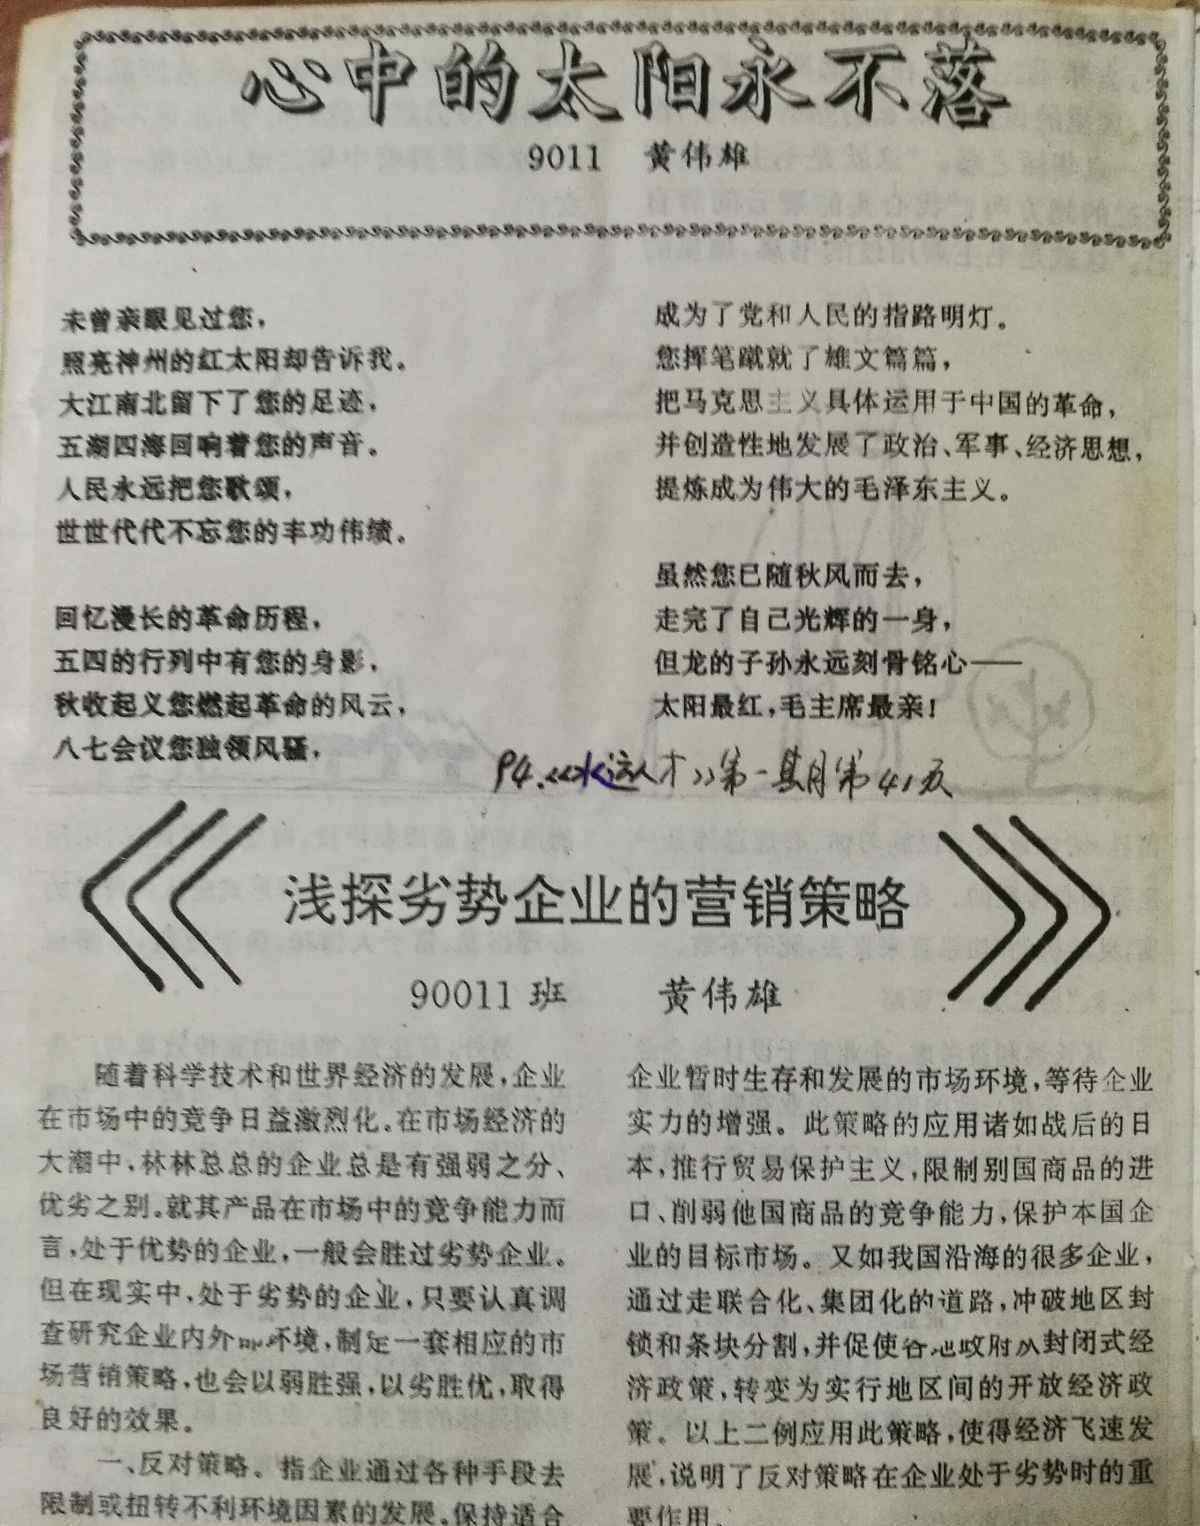 心中的太阳永不落
9011 黄伟雄
未曾亲眼见过您，
照亮神州的红太阳却告诉我。
大江南北留下了您的足迹，
五湖四海回响着您的声音。
人民永远把您歌颂，
世世代代不忘您的丰功伟绩。
回忆漫长的革命历程，
五四的行列中有您的身影，
秋收起义您燃起革命的风云，
八七会议您独领风骚，
成为了党和人民的指路明灯。
您挥笔蹴就了雄文篇篇，
把马克思主义具体运用于中国的革命，
并创造性地发展了政治、军事、经济思想，
提炼成为伟大的毛泽东主义。
虽然您已随秋风而去，
走完了自己光辉的一身，
但龙的子孙永远刻骨铭心——
太阳最红，毛主席最亲！
P4.《水运人才》第一期第41页
浅探劣势企业的营销策略
90011班 黄伟雄
随着科学技术和世界经济的发展，企业
在市场中的竞争日益激烈化。在市场经济的
大潮中，林林总总的企业总是有强弱之分、
优劣之别。就其产品在市场中的竞争能力而
言，处于优势的企业，一般会胜过劣势企业。
但在现实中，处于劣势的企业，只要认真调
查研究企业内外部环境，制定一套相应的市
场营销策略，也会以弱胜强，以劣胜优，取得
良好的效果。
一、反对策略。指企业通过各种手段去
限制或扭转不利环境因素的发展。保持适合
企业暂时生存和发展的市场环境，等待企业
实力的增强。此策略的应用诸如战后的日
本，推行贸易保护主义，限制别国商品的进
口、削弱他国商品的竞争能力，保护本国企
业的目标市场。又如我国沿海的很多企业，
通过走联合化、集团化的道路，冲破地区封
锁和条块分割，并促使各地政府从封闭式经
济政策，转变为实行地区间的开放经济政
策。以上二例应用此策略，使得经济飞速发
展，说明了反对策略在企业处于劣势时的重
要作用。